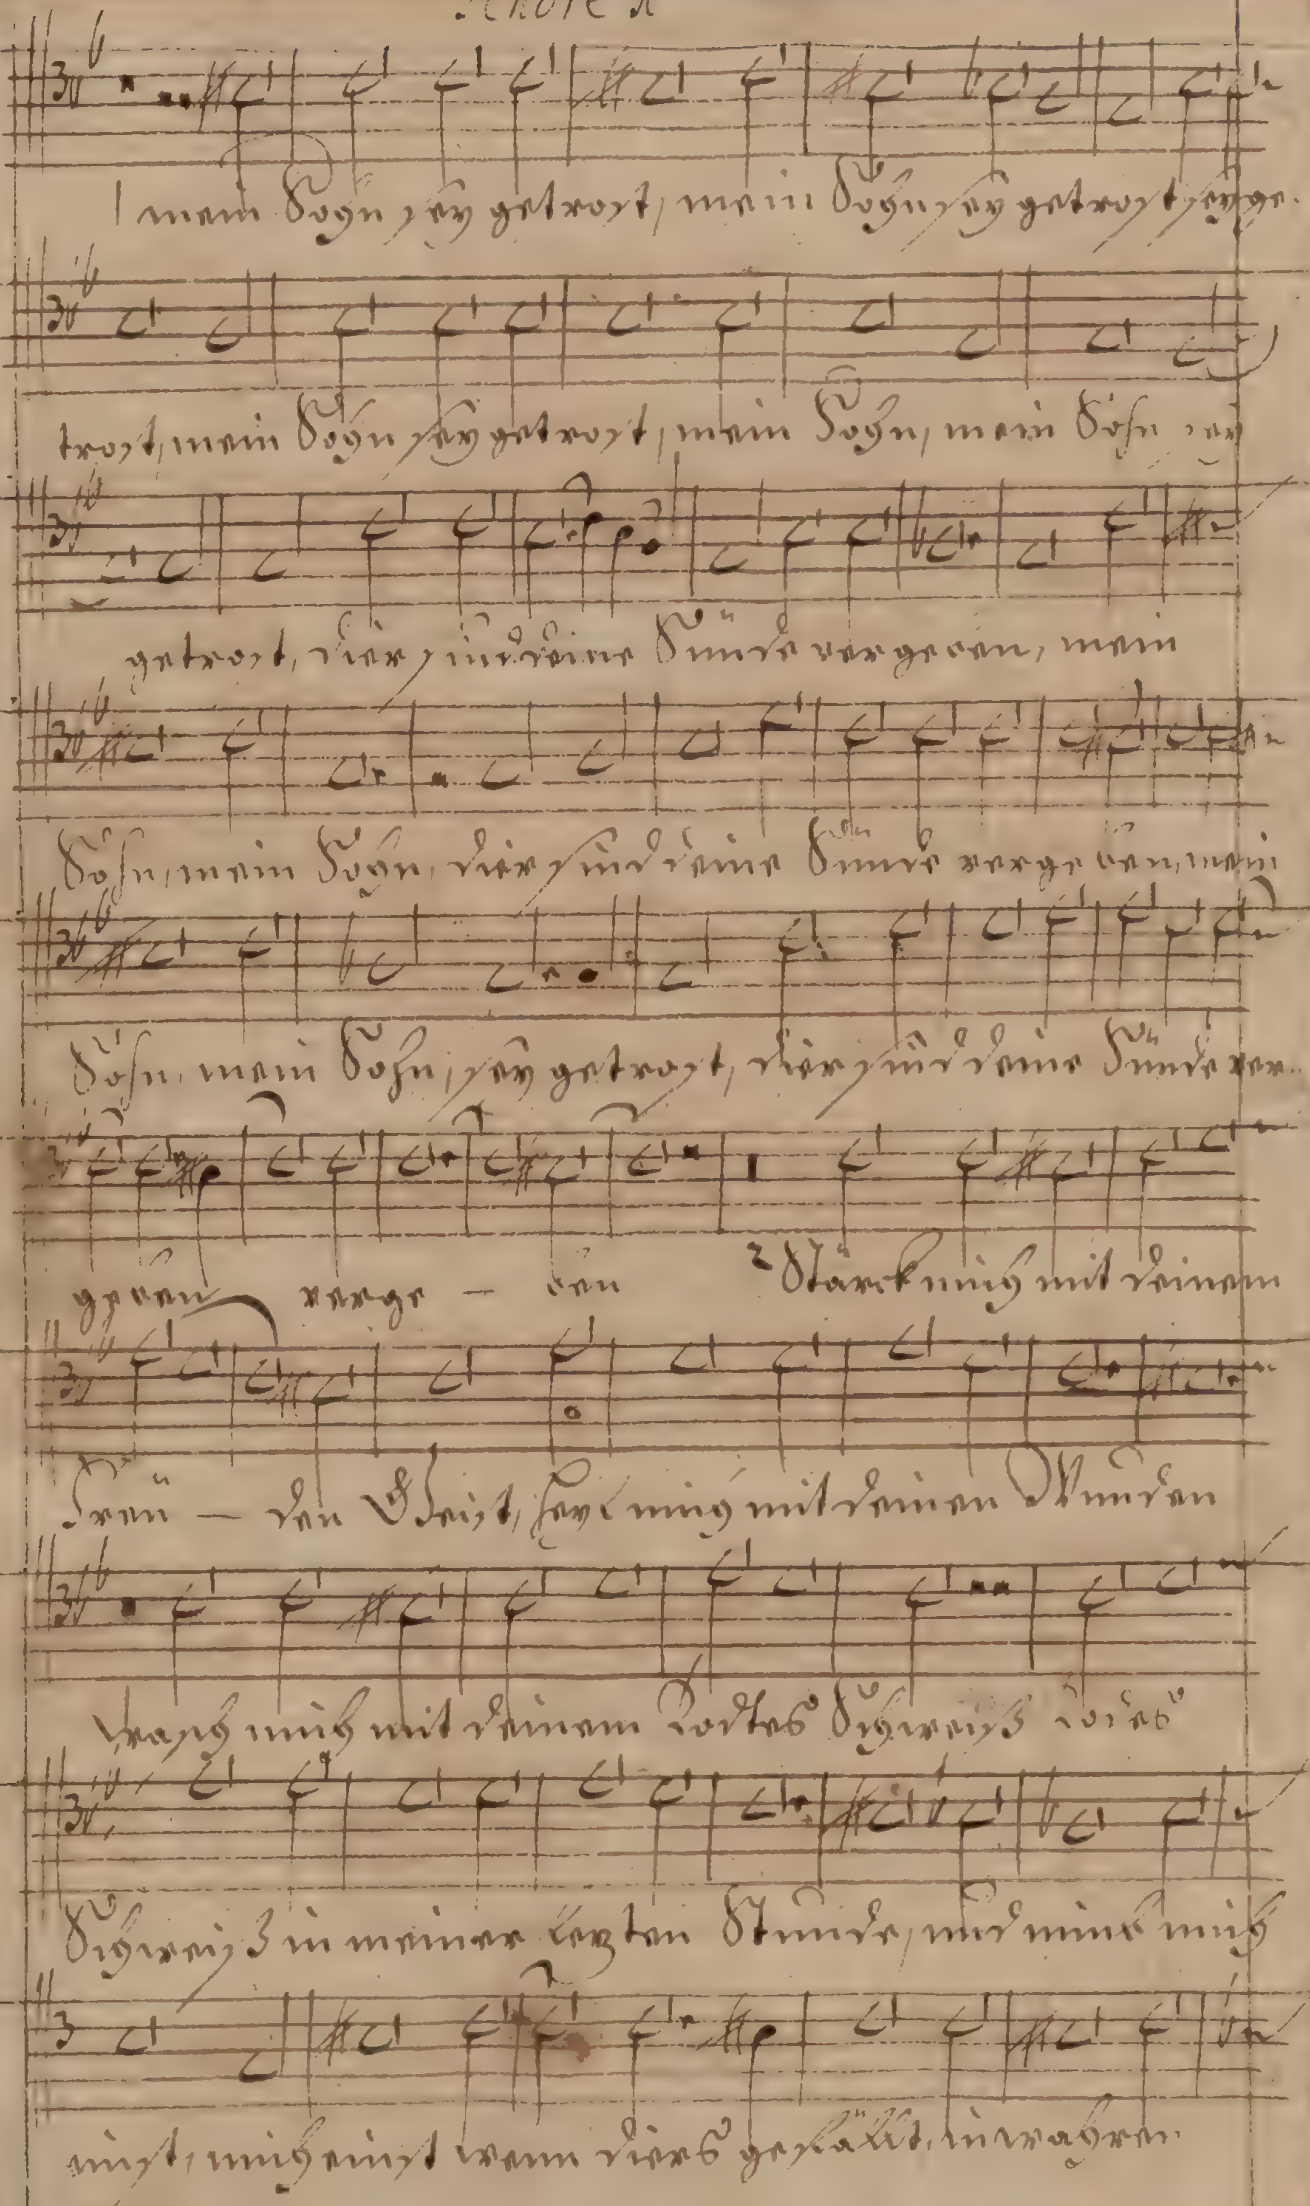 mein Sohn sey getrost, mein Sohn sey getrost sey ge-
trost, mein Sohn sey getrost, mein Sohn, mein Sohn sey
getrost, dier sind deine Sünde vergeben, mein
Sohn, mein Sohn, dier sind deine Sünde vergeben, mein
Sohn, mein Sohn, sey getrost, dier sind deine Sünde ver-
geben verge - ben 2 Stärck mich mit deinem
Freü - den Geist, heyl mich mit deinen Wunden
wasch mich mit deinem Todtes Schweiß Todes
Schweiß in meiner letzten Stunde, und nimb mich
einst, wenn diers gefällt, in wahren